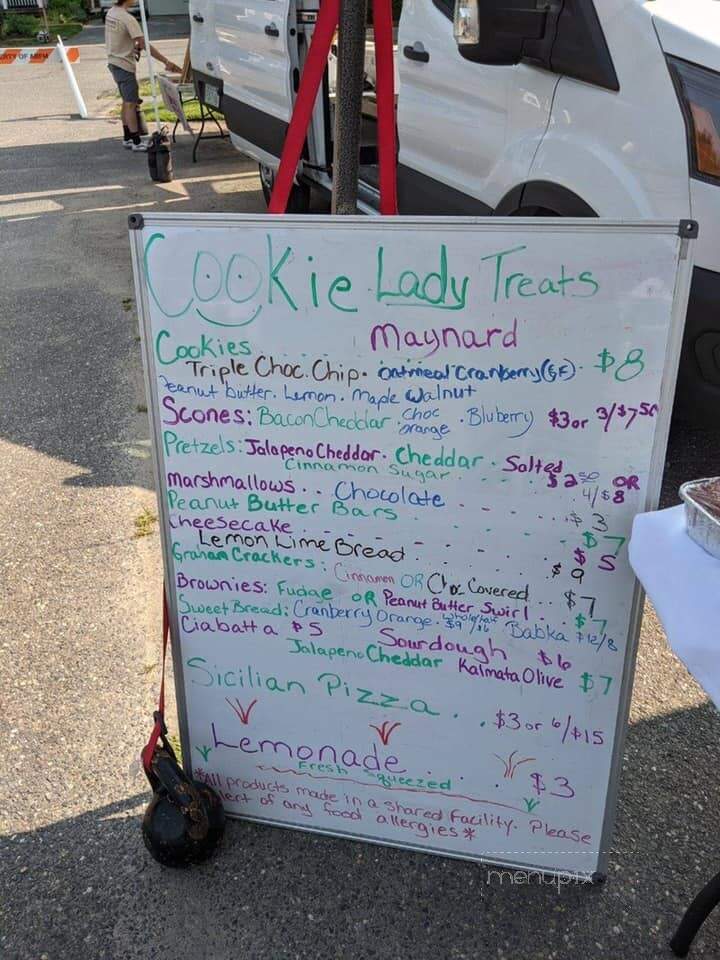 Cookie Lady Treats
Maynard
Cookies . . . . . $8
Triple Choc. Chip. oatmeal Cranberry (GF).
Peanut butter. Lemon. Maple Walnut
Scones: Bacon Cheddar. Choc orange . Bluberry $3 or 3/$7 50
Pretzels: Jalapeno Cheddar. Cheddar. Salted
Cinnamon Sugar . . . $2 50 OR 4/$8
Marshmallows . . Chocolate . . . . . $3
Peanut Butter Bars . . . . . $7
Cheesecake . . . . . $5
Lemon Lime Bread . . . . $9
Graham Crackers: Cinnamon OR Choc Covered . . $7
Brownies: Fudge OR Peanut Butter Swirl . . $7
Sweet Bread: Cranberry Orange. whole/half $9/$6 Babka $12/8
Ciabatta $5 Sourdough $6
Jalapeno Cheddar Kalmata Olive $7
Sicilian Pizza . . . $3 or 6/$15
Lemonade . . . . $3
Fresh Squeezed
*All products made in a shared facility. Please
alert of any food allergies*
menupix